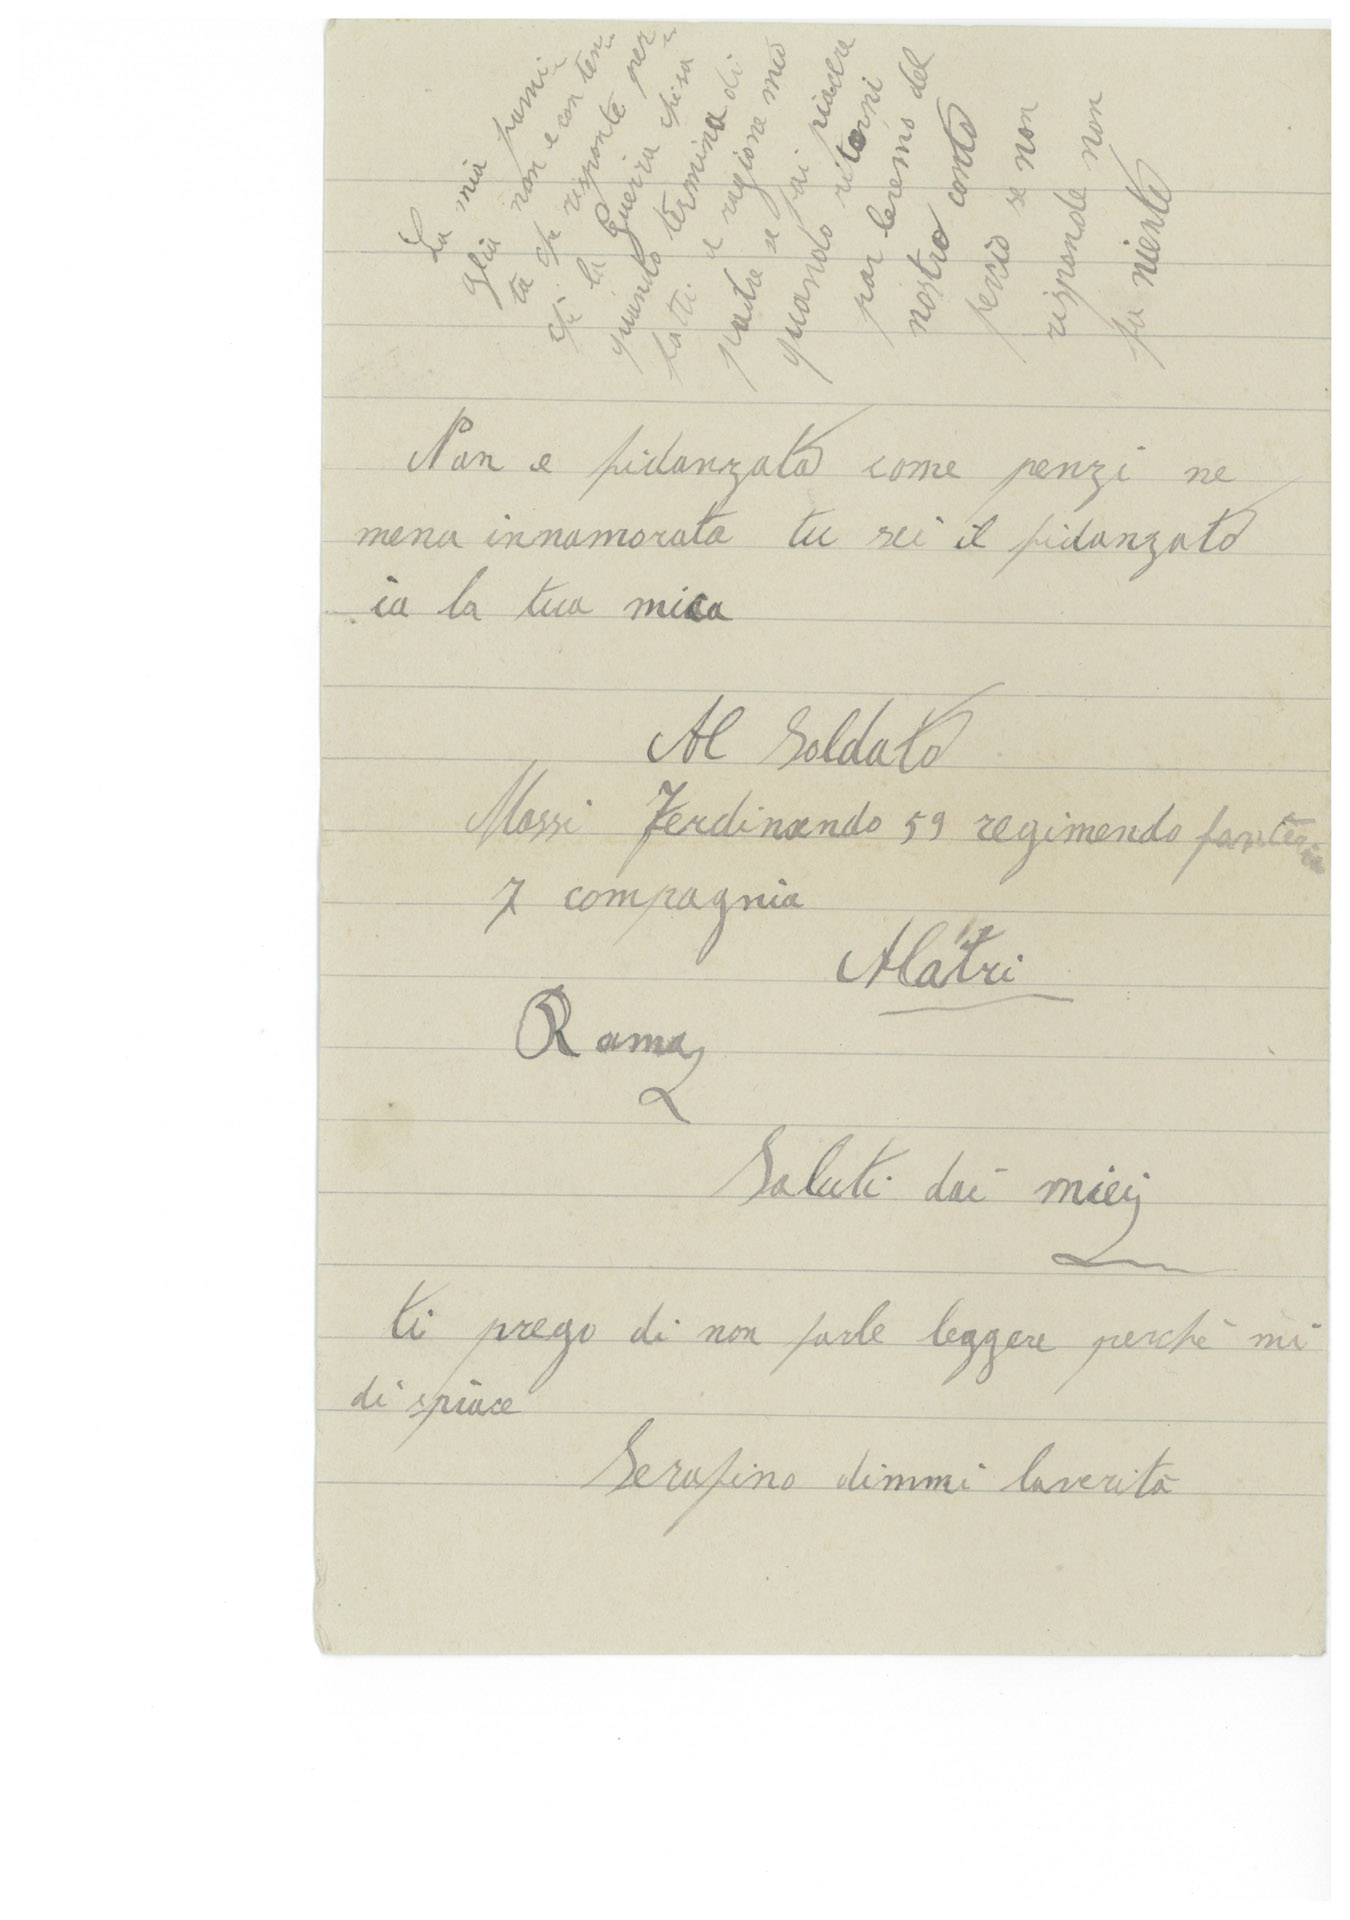 La mia fami
glia non e conten
ta che risponte per
che la Guerra chisa
quando termina di
fatti a ragione mio
padre se fai piacere
quando ritorni
parleremo del
nostro conto
percio se non
risponde non
fa niente
Non e fidanzato come penzi ne
meno innamorata tu sei il fidanzato
io la tua mica
Al Soldato
Massi Ferdinando 59 regimendo fanteria
7 compagnia
Alatri
Roma
Saluti dai miei
ti prego di non farle leggere perchè mi
di spiace
Serafino dimmi laverità